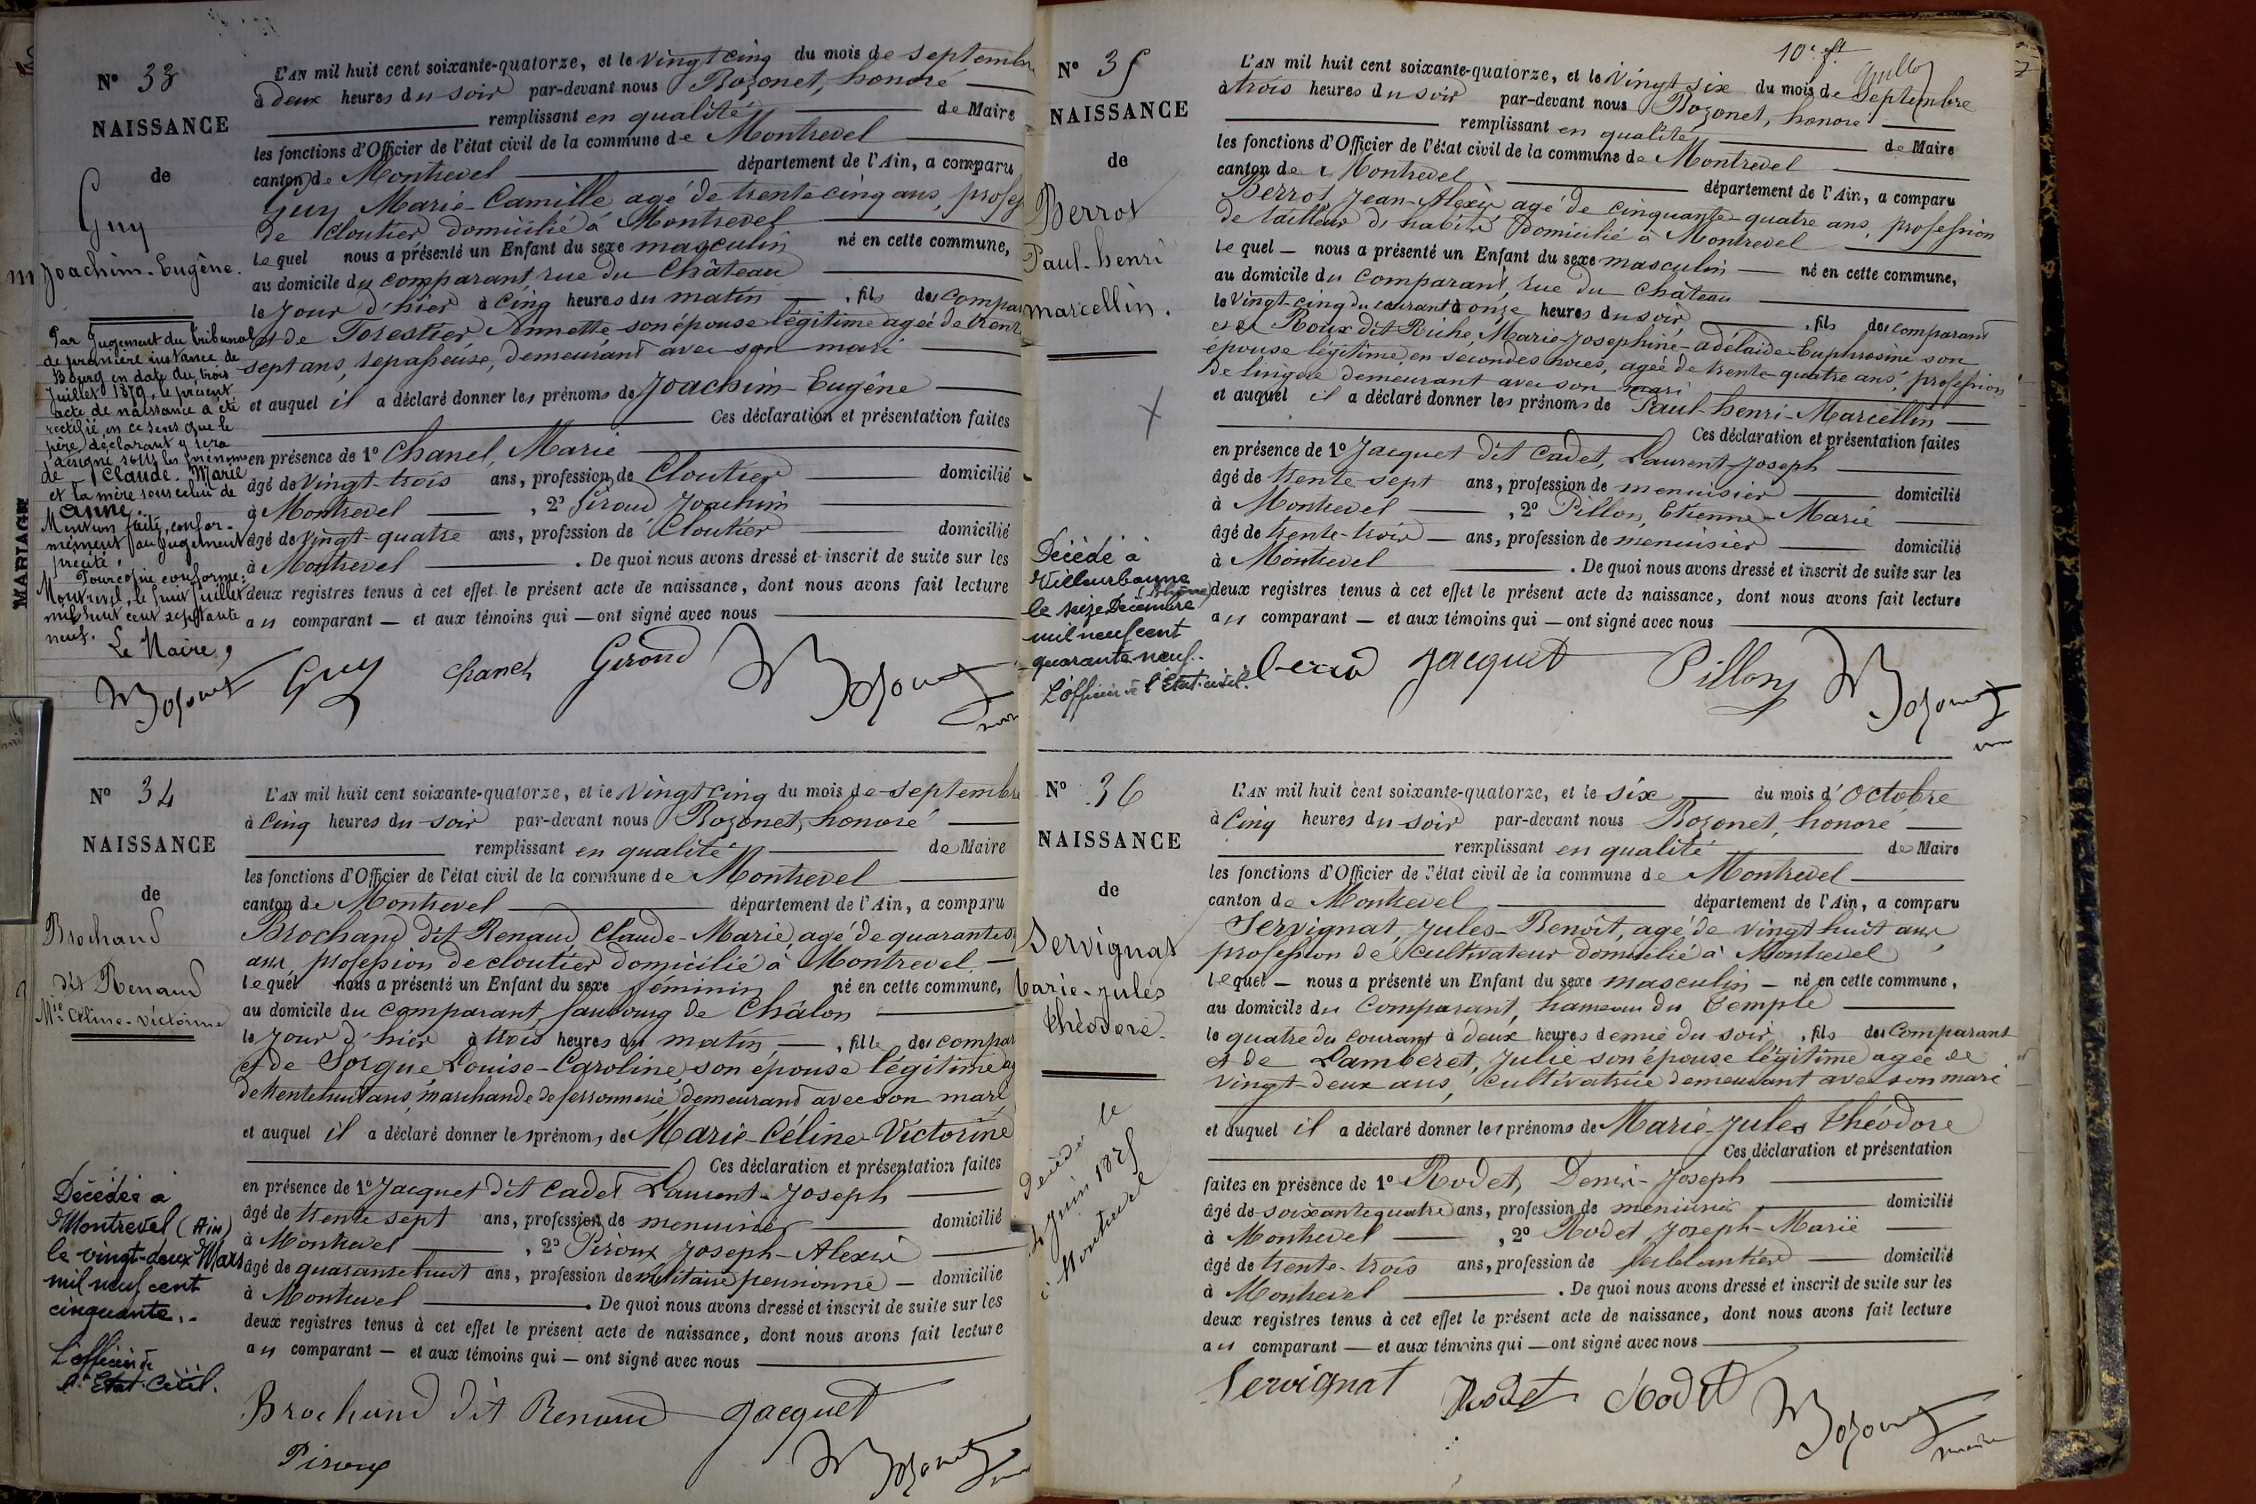 N° 33
NAISSANCE
de
Guy
Joachim-Eugène.
m
L'AN mil huit cent soixante-quatorze, et le vingt cinq du mois de septembre
à deux heures du soir par-devant nous Bozonet, honoré
remplissant en qualité de Maire
les fonctions d'Officier de l'état civil de la commune de Montrevel
canton de Montrevel département de l'Ain, a comparu
Guy Marie-Camille agé de trente cinq ans, profes
de cloutier domicilié à Montrevel
lequel nous a présenté un Enfant du sexe masculin né en cette commune,
au domicile du comparant, rue du Château
le jour d'hier à cinq heures du matin, fils des compar
et de Forestier Annette son épouse légitime agée de trent
sept ans, repasseuse, demeurant avec son mari
et auquel il a déclaré donner les prénoms de Joachim-Eugène
Ces déclaration et présentation faites
en présence de 1° Chanel, Marie
âgé de vingt-trois ans, profession de Cloutier domicilié
à Montrevel, 2° Giroud Joachim
âgé de vingt-quatre ans, profession de Cloutier domicilié
à Montrevel. De quoi nous avons dressé et inscrit de suite sur les
deux registres tenus à cet effet le présent acte de naissance, dont nous avons fait lecture
au comparant — et aux témoins qui — ont signé avec nous
Par Jugement du tribunal
de première instance de
Bourg en date du trois
Juillet 1879, le présent
acte de naissance a été
rectifié en ce sens que le
père déclarant y sera
désigné sous les prénoms
de Claude-Marie
et la mère sous celui de
Anne.
Mention faite confor-
mément au Jugement
précité.
Pour copie conforme:
Montrevel, le huit juillet
mil huit cent septante
neuf.
Le Maire,
MARIAGE
Bozonet Guy Chanel Giroud Bozonet
N° 34
NAISSANCE
de
Brochand
dit Renaud
Mie Céline-Victorine
L'AN mil huit cent soixante-quatorze, et le vingt cinq du mois de septembre
à cinq heures du soir par-devant nous Bozonet, honoré
remplissant en qualité de Maire
les fonctions d'Officier de l'état civil de la commune de Montrevel
canton de Montrevel département de l'Ain, a comparu
Brochand dit Renaud, Claude-Marie, agé de quarante
ans, profession de cloutier domicilié à Montrevel.
lequel nous a présenté un Enfant du sexe féminin né en cette commune,
au domicile du comparant, faubourg de Châlon
le jour d'hier à trois heures du matin —, fille des compar
et de Sorgue Louise-Caroline, son épouse légitime ag
de trente huit ans, marchande de ferronnerie, demeurant avec son mari
et auquel il a déclaré donner les prénoms de Marie-Céline-Victorine
Ces déclaration et présentation faites
en présence de 1° Jacquet dit Cadet Laurent-Joseph
âgé de trente sept ans, profession de menuisier domicilié
à Montrevel, 2° Piroux Joseph-Alexis
âgé de quarante huit ans, profession de militaire pensionné — domicilié
à Montrevel. De quoi nous avons dressé et inscrit de suite sur les
deux registres tenus à cet effet le présent acte de naissance, dont nous avons fait lecture
au comparant — et aux témoins qui — ont signé avec nous
Décédée à
Montrevel (Ain)
le vingt-deux Mars
mil neuf cent
cinquante.
L'officier de
l'Etat-Civil.
Brochand dit Renaud Jacquet
Piroux Bozonet
N° 35
NAISSANCE
de
Perrot
Paul-henri
marcellin.
10e ft
L'AN mil huit cent soixante-quatorze, et le vingt six du mois de septembre
à trois heures du soir par-devant nous Bozonet, honoré
remplissant en qualité de Maire
les fonctions d'Officier de l'état civil de la commune de Montrevel
canton de Montrevel département de l'Ain, a comparu
Perrot Jean-Alexis agé de cinquante-quatre ans, profession
de tailleur d'habits domicilié à Montrevel
lequel — nous a présenté un Enfant du sexe masculin — né en cette commune,
au domicile du comparant, rue du Château
le vingt-cinq du courant à onze heures du soir, fils des comparant
et de Roux dit Riche, Marie-Joséphine-adélaïde-Euphrosine son
épouse légitime en secondes noces, agée de trente-quatre ans, profession
de lingère demeurant avec son mari
et auquel il a déclaré donner les prénoms de Paul-henri-Marcellin
Ces déclaration et présentation faites
en présence de 1° Jacquet dit Cadet, Laurent-Joseph
âgé de trente sept ans, profession de menuisier domicilié
à Montrevel, 2° Pillon, Etienne-Marie
âgé de trente-trois — ans, profession de menuisier domicilié
à Montrevel. De quoi nous avons dressé et inscrit de suite sur les
deux registres tenus à cet effet le présent acte de naissance, dont nous avons fait lecture
au comparant — et aux témoins qui — ont signé avec nous
Décédé à
Villeurbanne
(Rhône)
le seize Décembre
mil neuf cent
quarante-neuf.
L'officier de l'Etat-civil.
Perrot Jacquet Pillon Bozonet
N° 36
NAISSANCE
de
Servignat
Marie-Jules
théodore.
L'AN mil huit cent soixante-quatorze, et le six du mois d'octobre
à Cinq heures du soir par-devant nous Bozonet, honoré
remplissant en qualité de Maire
les fonctions d'Officier de l'état civil de la commune de Montrevel
canton de Montrevel département de l'Ain, a comparu
Servignat, Jules-Benoît, agé de vingt huit ans,
profession de cultivateur domicilié à Montrevel
lequel — nous a présenté un Enfant du sexe masculin — né en cette commune,
au domicile du comparant, hameau du Temple
le quatre du courant à deux heures demie du soir, fils des Comparant
et de Lamberet, Julie son épouse légitime agée de
vingt-deux ans, cultivatrice demeurant avec son mari
et auquel il a déclaré donner les prénoms de Marie-Jules théodore
Ces déclaration et présentation
faites en présence de 1° Rodet, Denis-Joseph
âgé de soixante quatre ans, profession de menuisier domicilié
à Montrevel, 2° Rodet, Joseph-Marie
âgé de trente-trois ans, profession de ferblantier domicilié
à Montrevel. De quoi nous avons dressé et inscrit de suite sur les
deux registres tenus à cet effet le présent acte de naissance, dont nous avons fait lecture
au comparant — et aux témoins qui — ont signé avec nous
Décédé le
juin 1875
à Montrevel
Servignat Rodet Rodet Bozonet
maire